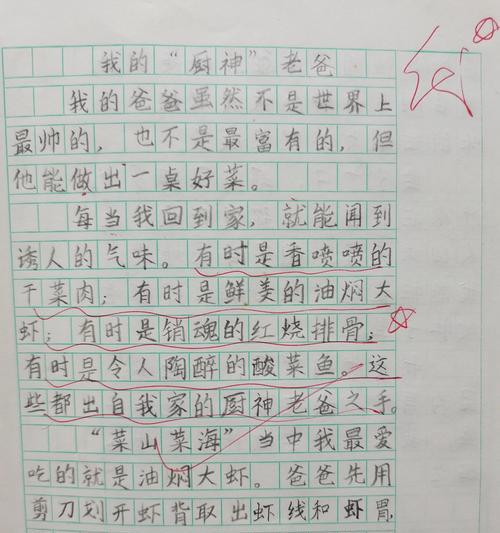 我的“厨神”老爸
我的爸爸虽然不是世界上
最帅的，也不是最富有的，但
他能做出一桌好菜。
每当我回到家，就能闻到
诱人的气味。有时是香喷喷的
干菜肉；有时是鲜美的油焖大
虾；有时是销魂的红烧排骨；
有时是令人陶醉的酸菜鱼。这
些都出自我家的厨神老爸之手。
“菜山菜海”当中我最爱
吃的就是油焖大虾。爸爸先用
剪刀划开虾背取出虾线和虾胃，